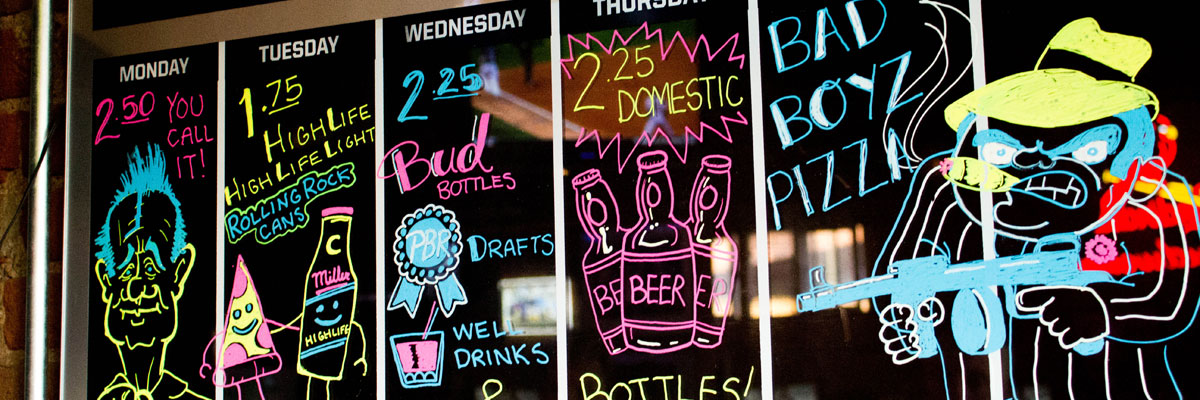 MONDAY
2.50 YOU
CALL
IT!
TUESDAY
1.75
HIGH LIFE
HIGH LIFE LIGHT
ROLLING ROCK
CANS
C
Miller
HIGHLIFE
WEDNESDAY
2.25
Bud
BOTTLES
PBR DRAFTS
WELL
DRINKS
&
THURSDAY
2.25
DOMESTIC
BEER BEER BEER
BOTTLES!
BAD
BOYZ
PIZZA